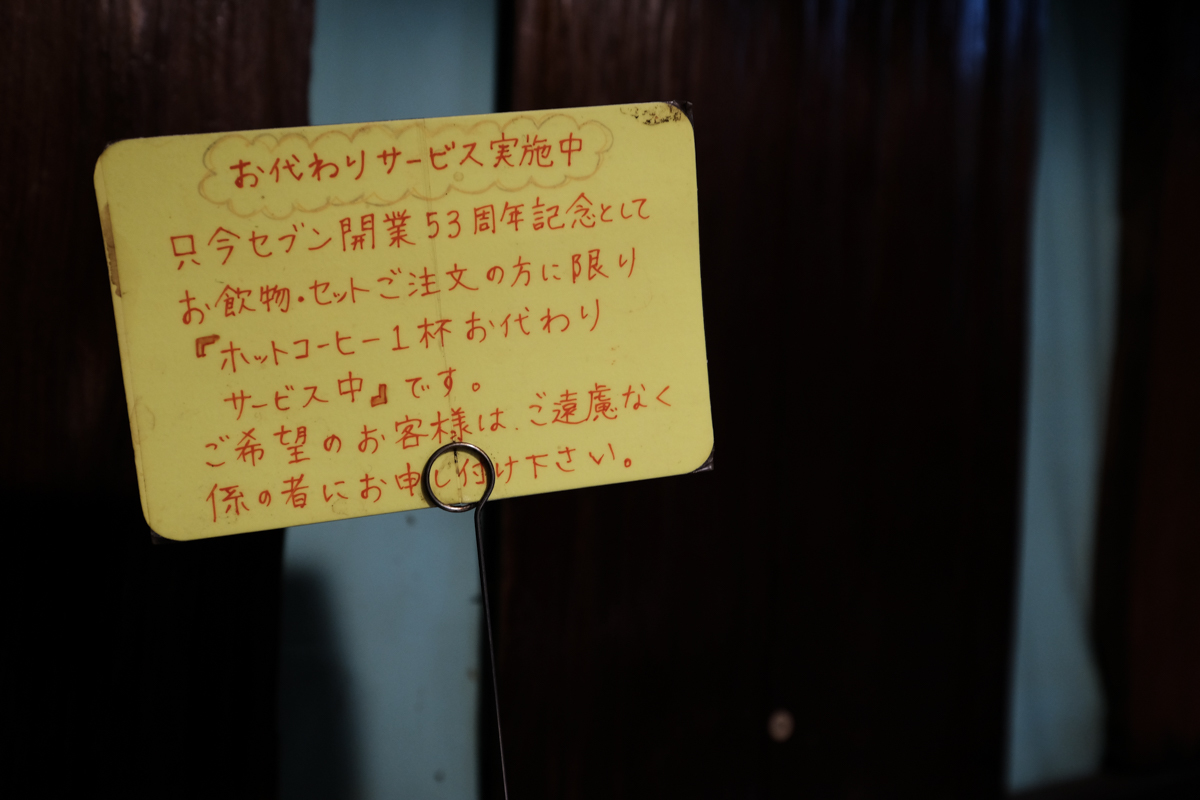 お代わりサービス実施中
只今セブン開業53周年記念として
お飲物・セットご注文の方に限り
『ホットコーヒー1杯お代わり
サービス中』です。
ご希望のお客様は、ご遠慮なく
係の者にお申し付け下さい。